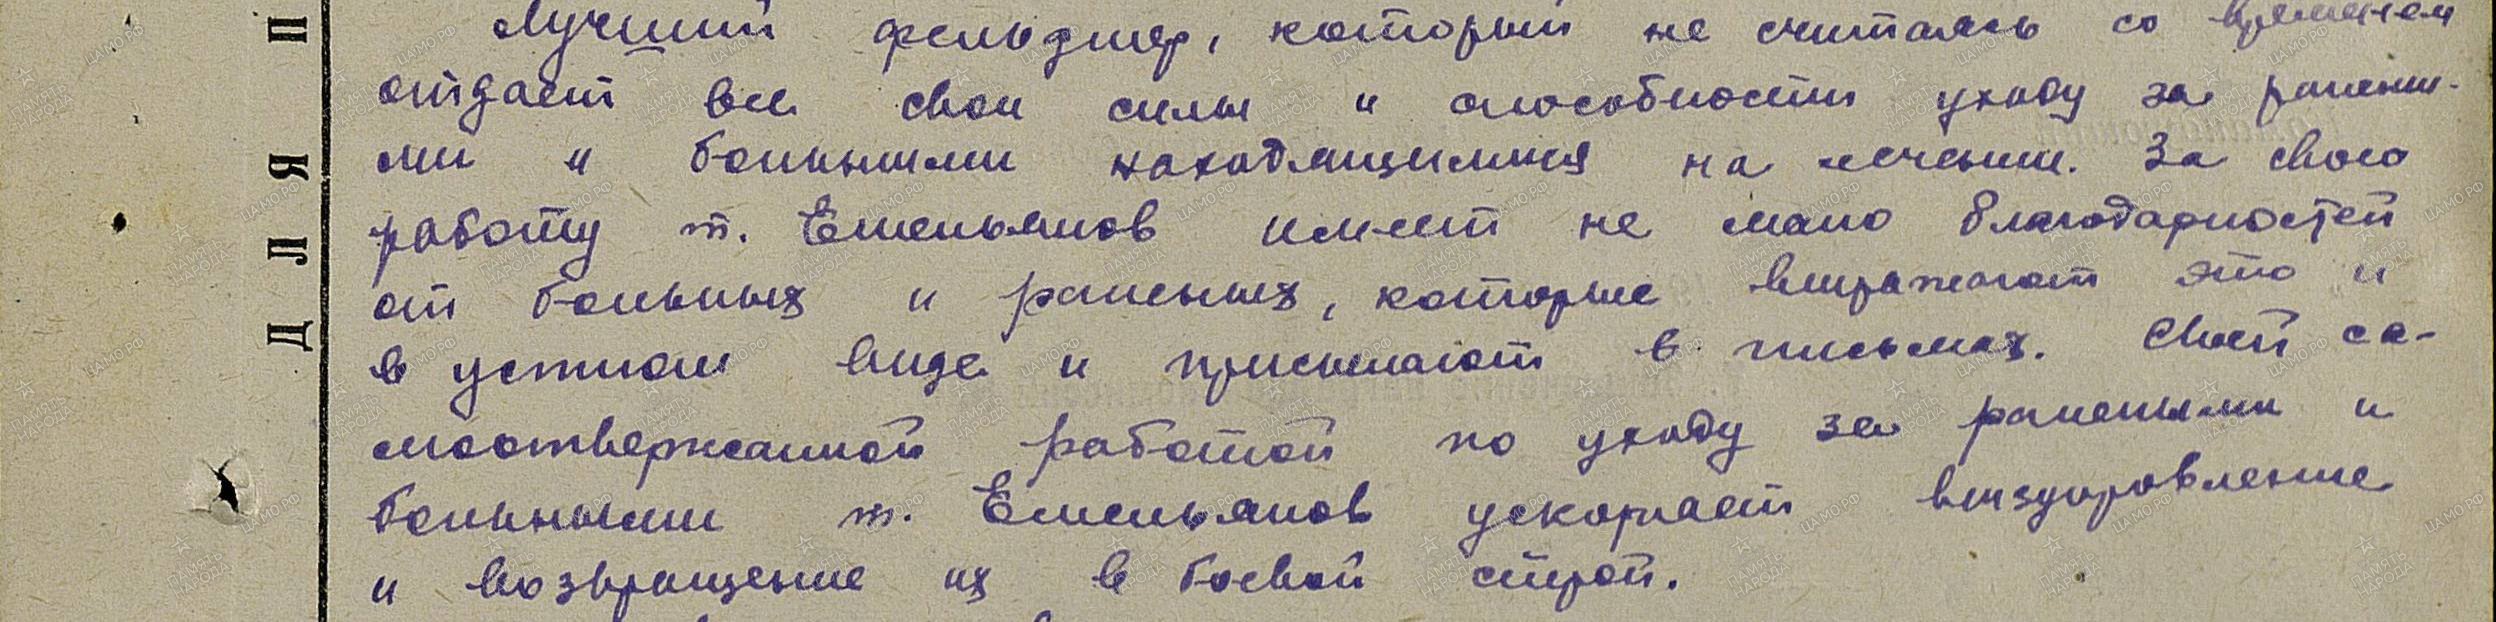 Лучший фельдшер, который не считаясь со временем
отдает все свои силы и способности уходу за ранены-
ми и больными находящимися на лечении. За свою
работу т. Емельянов имеет не мало благодарностей
от больных и раненых, которые выражают это и
в устном виде и присылают в письмах. Своей са-
моотверженной работой по уходу за ранеными и
больными т. Емельянов ускоряет выздоровление
и возвращение их в боевой строй.
ДЛЯ П
ПАМЯТЬ НАРОДА
ЦАМО.РФ